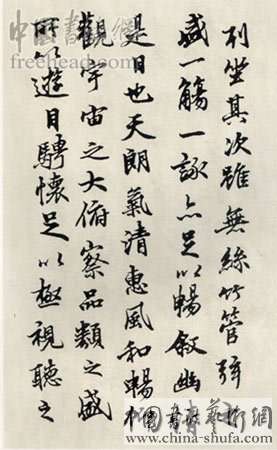 列坐其次雖無絲竹管弦
盛一觴一詠亦足以暢敘幽
是日也天朗氣清惠風和暢仰
觀宇宙之大俯察品類之盛
所以遊目騁懷足以極視聽之
freehead.com
www.china-shufa.com